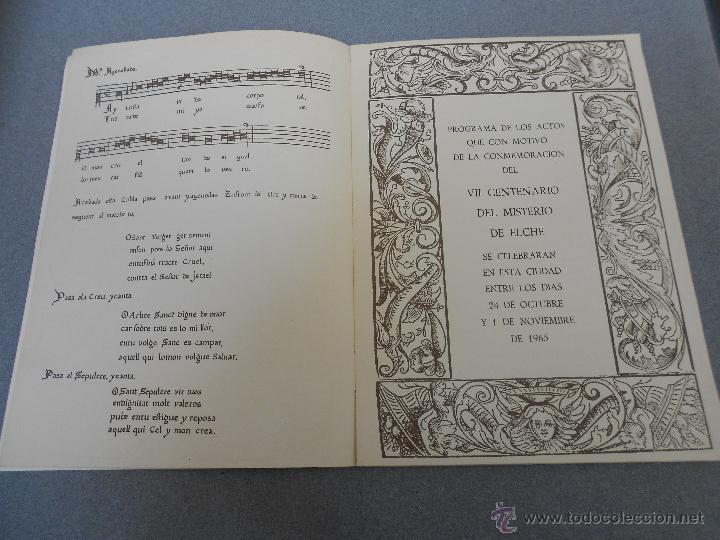 Mª Agenollada.
Ay trista vi da corpo ral,
O mon cru el tan de si gual
Acabada esta Cobla pasa avant yagenollas Enfront lo Ort y canta lo
seguent al mateix to.
O Sant Verger get semani
onfou pres lo Señor aqui
entu finá tracte Cruel,
contra el Señor de jsrael
Pasa ala Creu, ycanta.
O Arbre Sanct digne de onor
car sobre tots es lo mi llor,
entu volge Sanc es campar,
aquell qui lo mon volgue Salvar.
Pasa al Sepulcre, ycanta.
O Sant Sepulcre vir tuos
en dignitat molt valeros
puix en tu estigue y reposa
aquell qui Cel y mon crea.
PROGRAMA DE LOS ACTOS
QUE CON MOTIVO
DE LA CONMEMORACION
DEL
VII CENTENARIO
DEL MISTERIO
DE ELCHE
SE CELEBRARAN
EN ESTA CIUDAD
ENTRE LOS DIAS
24 DE OCTUBRE
Y 1 DE NOVIEMBRE
DE 1965
www.todocoleccion.net